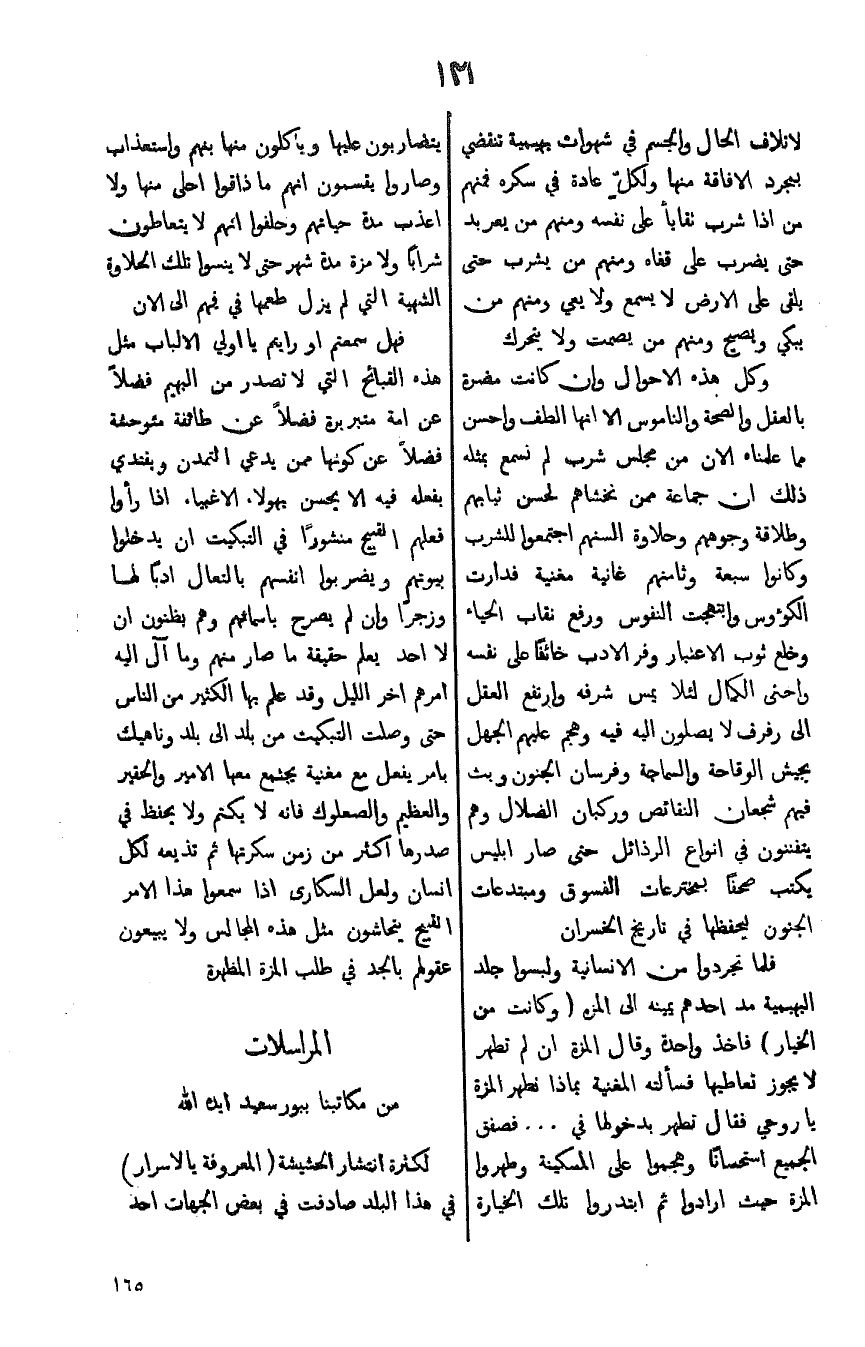 ١٢١
لاتلاف الحال والجسم في شهوات بهيمية تنقضي
بمجرد الافاقة منها ولكلٍ عادة في سكره فمنهم
من اذا شرب تقاباً على نفسه ومنهم من يعربد
حتى يضرب على قفاه ومنهم من يشرب حتى
يلقى على الارض لا يسمع ولا يعي ومنهم من
يبكي ويصيح ومنهم من يصمت ولا يتحرك
وكل هذه الاحوال وان كانت مضرة
بالعقل والصحة والناموس الا انها الطف واحسن
مما علمناه الان من مجلس شرب لم نسمع بمثله
ذلك ان جماعة ممن نخشاهم لحسن ثيابهم
وطلاقة وجوههم وحلاوة السنهم اجتمعوا للشرب
وكانوا سبعة وثامنهم غانية مغنية فدارت
الكؤوس وابتهجت النفوس ورفع نقاب الحياء
وخلع ثوب الاعتبار وفر الادب خائفًا على نفسه
واحنى الكمال لئلا يمس شرفه وارتفع العقل
الى رفرف لا يصلون اليه فيه وهجم عليهم الجهل
بجيش الوقاحة والسماجة وفرسان الجنون وبث
فيهم شجعان النقائص وركبان الضلال وهم
يتفننون في انواع الرذائل حتى صار ابليس
يكتب صحفًا بمخترعات الفسوق ومبتدعات
الجنون ليحفظها في تاريخ الخسران
فلما تجردوا من الانسانية ولبسوا جلد
البهيمية مد احدهم يمينه الى المزه ( وكانت من
الخيار ) فاخذ واحدة وقال المزة ان لم تطهر
لا يجوز تعاطيها فسألته المغنية بماذا تطهر المزة
يا روحي فقال تطهر بدخولها في ... فصفق
الجميع استحسانًا وهجموا على المسكينة وطهروا
المزة حيث ارادوا ثم ابتدروا تلك الخيارة
يتضاربون عليها ويأكلون منها بنهم واستعذاب
وصاروا يقسمون انهم ما ذاقوا احلى منها ولا
اعذب مدة حياتهم وحلفوا انهم لا يتعاطون
شرابًا ولا مزة مدة شهر حتى لا ينسوا تلك الحلاوة
الشهية التي لم يزل طعمها في فمهم الى الان
فهل سمعتم او رايتم يا اولي الالباب مثل
هذه القبائح التي لا تصدر من البهيم فضلاً
عن امة متبربرة فضلاً عن طائفة متوحشة
فضلاً عن كونها ممن يدعي التمدن ويقتدي
بفعله فيه الا يحسن بهولاء الاغبياء اذا رأوا
فعلهم القبيح منشورًا في التبكيت ان يدخلوا
بيوتهم ويضربوا انفسهم بالنعال ادبًا لها
وزجرًا وان لم يصرح باسمائهم وهم يظنون ان
لا احد يعلم حقيقة ما صار منهم وما آل اليه
امرهم اخر الليل وقد علم بها الكثير من الناس
حتى وصلت التبكيت من بلد الى بلد وناهيك
بامر يفعل مع مغنية يجتمع معها الامير والحقير
والعظيم والصعلوك فانه لا يكتم ولا يحفظ في
صدرها اكثر من زمن سكرتها ثم تذيعه لكل
انسان ولعل السكارى اذا سمعوا هذا الامر
القبيح يتحاشون مثل هذه المجالس ولا يبيعون
عقولهم بالجد في طلب المزة المطهرة
المراسلات
من مكاتبنا ببور سعيد ايده الله
لكثرة انتشار الحشيشة ( المعروفة بالاسرار )
في هذا البلد صادفت في بعض الجهات احد
١٦٥